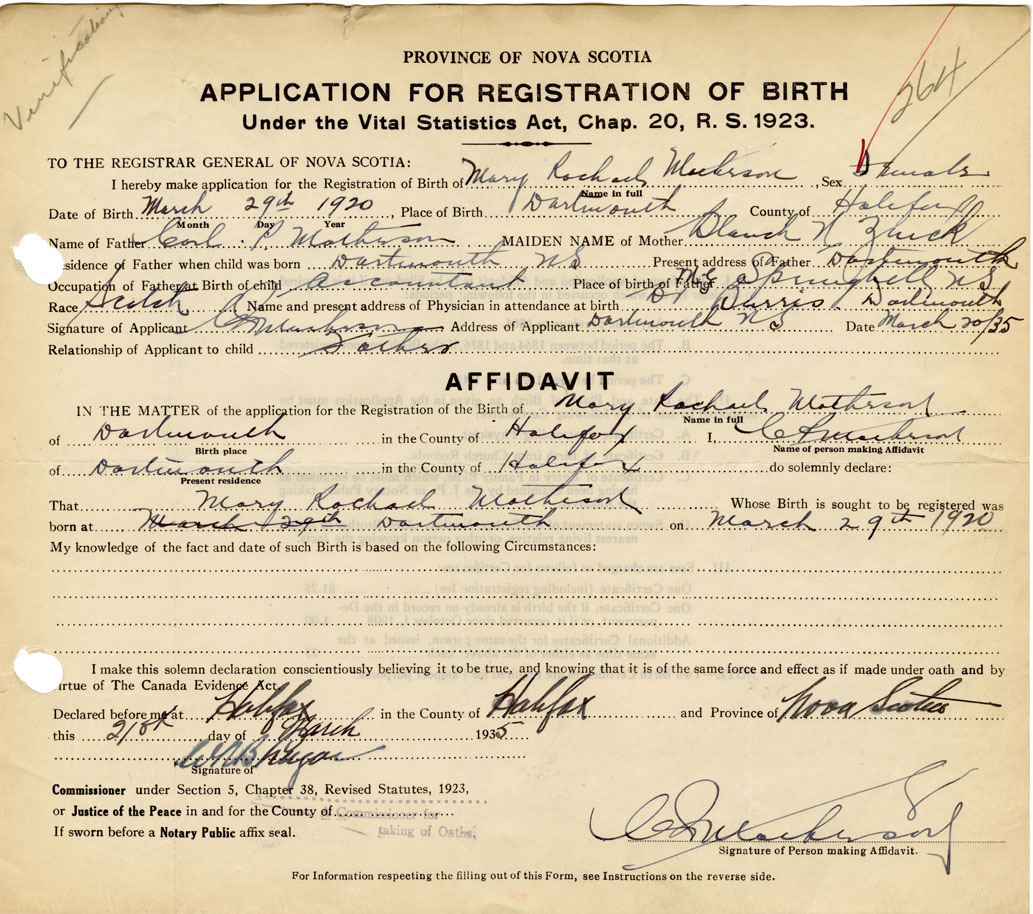 Verification
264
PROVINCE OF NOVA SCOTIA
APPLICATION FOR REGISTRATION OF BIRTH
Under the Vital Statistics Act, Chap. 20, R. S. 1923.
TO THE REGISTRAR GENERAL OF NOVA SCOTIA:
I hereby make application for the Registration of Birth of Mary Rachael Matherson, Sex Female
Name in full
Date of Birth March 29th 1920, Place of Birth Dartmouth County of Halifax
Month Day Year
Name of Father Carl P. Matherson MAIDEN NAME of Mother Blanch N Zwick
esidence of Father when child was born Dartmouth NS Present address of Father Dartmouth NS
Occupation of Father at Birth of child Accountant Place of birth of Father Springhill NS
Race Scotch Name and present address of Physician in attendance at birth Dr Burris Dartmouth
Signature of Applicant C P Matherson Address of Applicant Dartmouth NS Date March 20/35
Relationship of Applicant to child Father
AFFIDAVIT
IN THE MATTER of the application for the Registration of the Birth of Mary Rachael Matherson
Name in full
of Dartmouth in the County of Halifax I, C P Matherson
Birth place Name of person making Affidavit
of Dartmouth in the County of Halifax do solemnly declare:
Present residence
That Mary Rachael Matherson Whose Birth is sought to be registered was
born at March 29th Dartmouth on March 29th 1920
My knowledge of the fact and date of such Birth is based on the following Circumstances:
I make this solemn declaration conscientiously believing it to be true, and knowing that it is of the same force and effect as if made under oath and by
irtue of The Canada Evidence Act.
Declared before me at Halifax in the County of Halifax and Province of Nova Scotia
this 21st day of March 1935
Signature of
Commissioner under Section 5, Chapter 38, Revised Statutes, 1923,
or Justice of the Peace in and for the County of
Commissioner for
If sworn before a Notary Public affix seal.
taking of Oaths.
C P Matherson
Signature of Person making Affidavit.
For Information respecting the filling out of this Form, see Instructions on the reverse side.